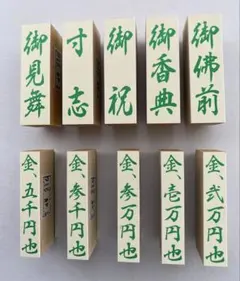 御見舞
寸志
御祝
御香典
御佛前
金、五千円也
金、参千円也
金、参万円也
金、壱万円也
金、弐万円也